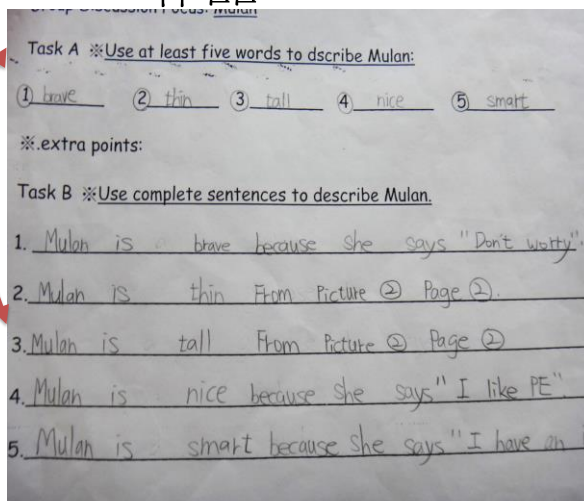 Group Discussion Focus: Mulan
Task A ※Use at least five words to dscribe Mulan:
① brave ② thin ③ tall ④ nice ⑤ smart
※.extra points:
Task B ※Use complete sentences to describe Mulan.
1. Mulan is brave because she says "Don't worry".
2. Mulan is thin From Picture ② Page ②.
3. Mulan is tall From Picture ② Page ②
4. Mulan is nice because she says "I like PE".
5. Mulan is smart because she says "I have an